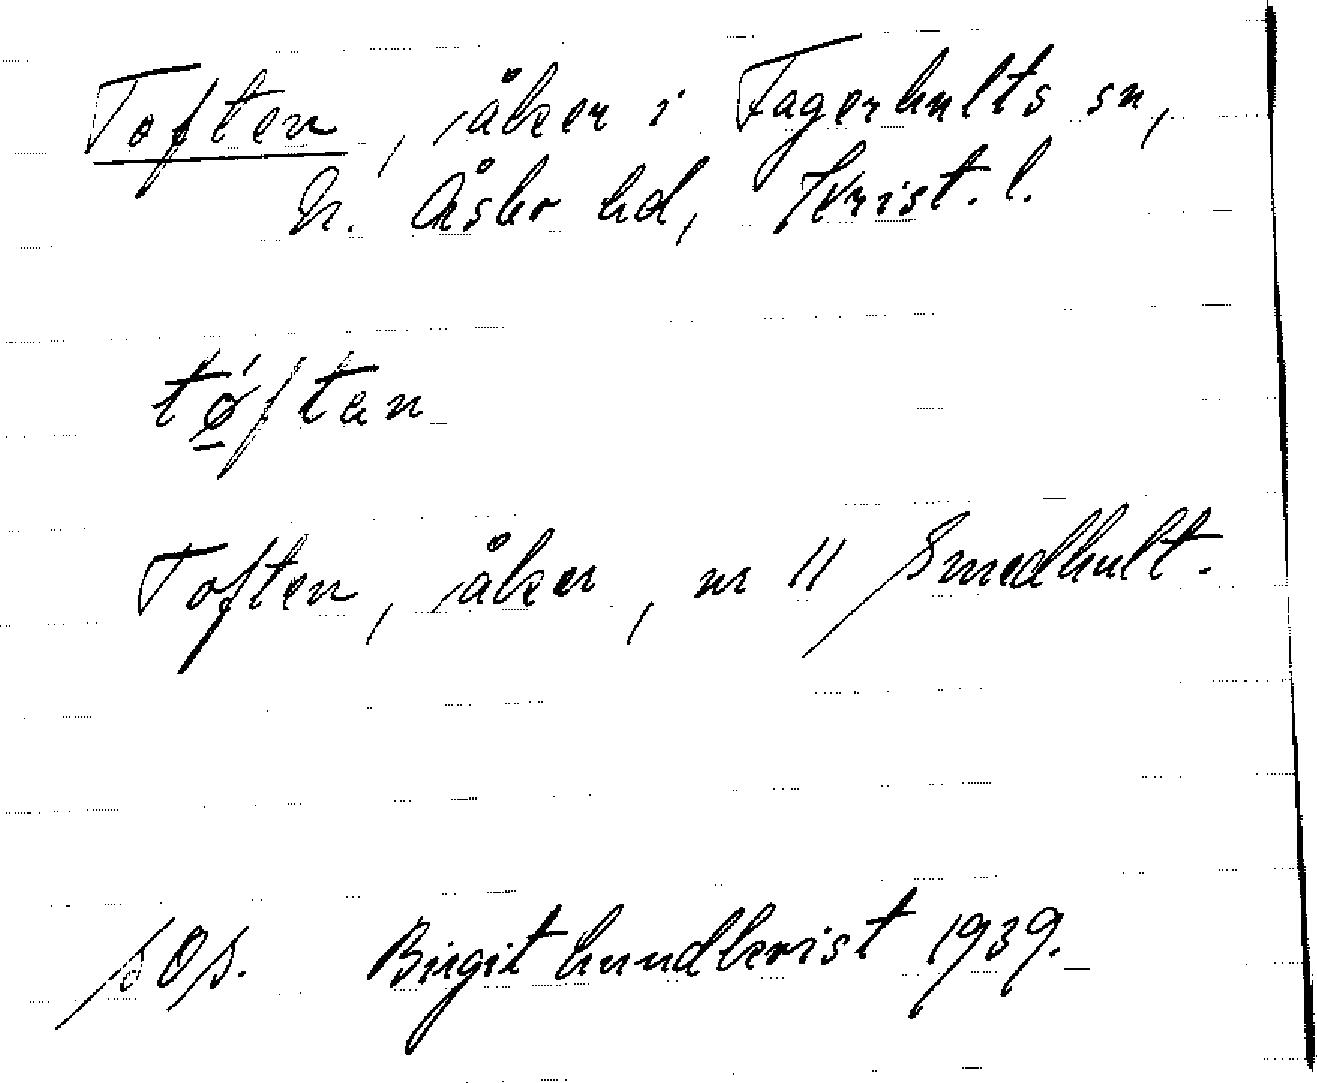 Toften, åker i Fagerhults sn,
N. Åsbo hd, Krist. l.
tǿ̱ftan
Toften, åker, nr 11 Smedhult.
sOs. Birgit Lundkvist 1939.